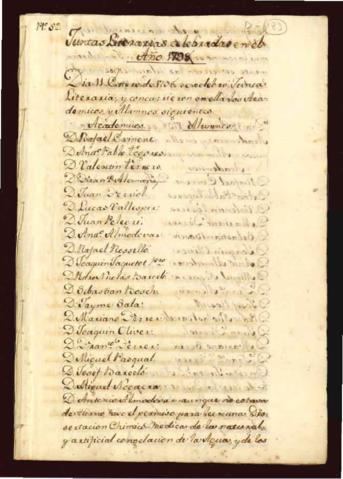 Nº 52
Juntas Literarias celebradas en el
Año 1796
Dia 11 Enero de 1796 se celebro Junta
Literaria, y concurrieron en ella los Aca-
demicos y Alumnos siguientes
Academicos Alumnos
D. Rafael
D. Anto. Pablo
D. Valentin Terrers
D. Juan
D. Lucas Vallespir
D. Juan Pelegri
D. Anto. Almodovar
D. Rafael Rosselló
D. Joaquin Jaquotot
D. Nicolas Barceló
D. Sebastian Bosch
D. Jayme Sala
D. Mariano Ferrer
D. Joaquin Oliver
D. Franco. Ferrer
D. Miquel Pasqual
D. Josef Barceló
D. Miguel Noguera
D. Antonio Almodovar aunque no estava
de turno tuvo el permiso para leer una Di-
sertacion Chimico Medica de la natural,
y artificial congelacion de la Agua, y de los